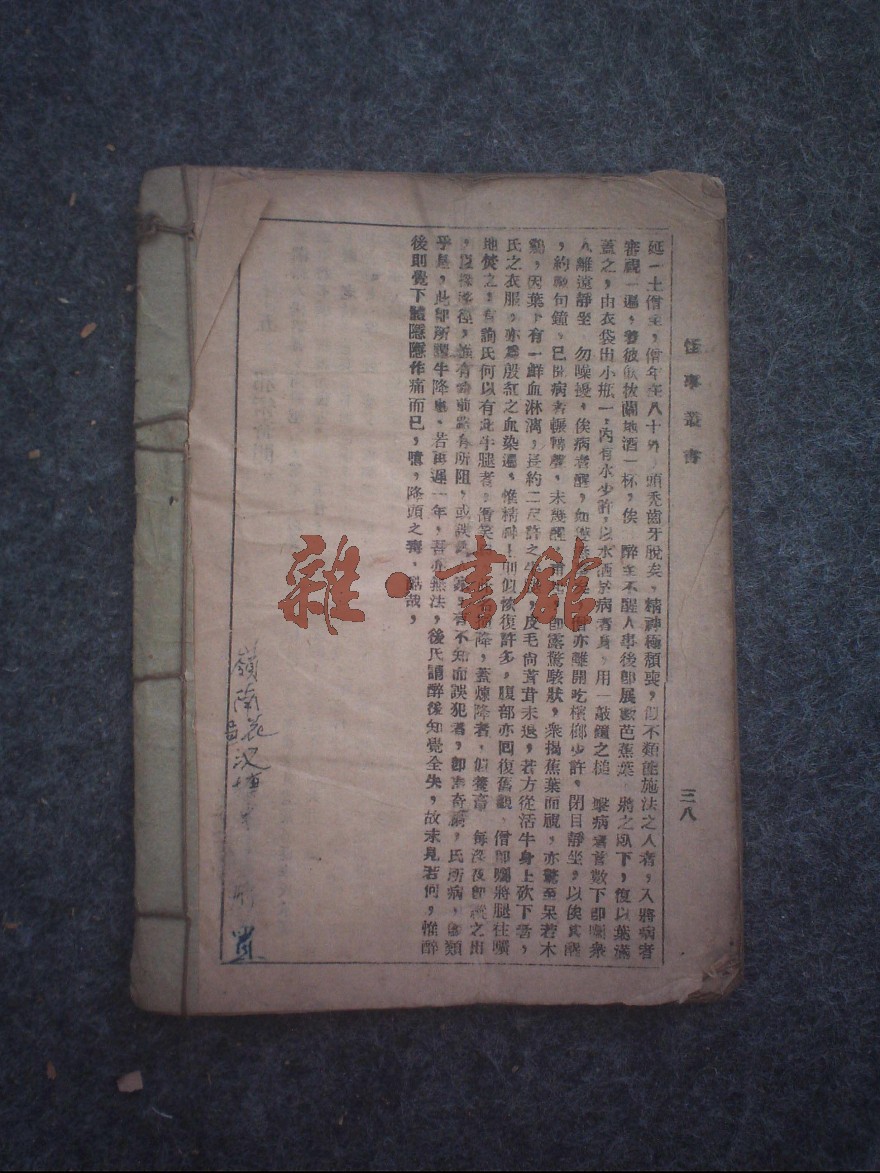 怪事叢書
三八
延一土僧至，僧年在八十外，頭禿齒牙脫矣，精神極頹喪，似不類能施法之人者，入將病者
審視一遍，著彼飲拔蘭地酒一杯，俟 醉至不醒人事後即展數芭蕉葉 將之臥下，復以葉滿
蓋之，由衣袋出小瓶一，內有水少許，以水洒於病者身，用一敲鑼之槌 擊病者首數下即囑衆
人離遠靜坐 勿噪擾，俟病者醒，如 僧亦離開吃檳榔少許，閉目靜坐，以俟其醒
，約 句鐘，已聞病者輾轉聲，未幾醒 即露驚駭狀，衆揭蕉葉而視，亦驚至呆若木
鷄，因葉下有一鮮血淋漓，長約二尺許之牛 皮毛尚茸茸未退，若方從活牛身上砍下者，
氏之衣服，亦爲殷紅之血染遍，惟精神 則似恢復許多，腹部亦回復舊觀，僧即囑將腿往曠
地焚之，有詢氏何以有此牛腿者，僧笑 降，蓋煉降者，必養 每深夜即縱之出
， 有所阻，或 者不知而誤犯者，即 奇 氏所病，即類
乎是，此即所謂牛降也，若再遲一年，吾亦無法，後氏謂醉後知覺全失，故未見若何，惟醉
後則覺下體隱隱作痛而已，噫，降頭之毒，酷哉，
嶺南
置
雜·書館